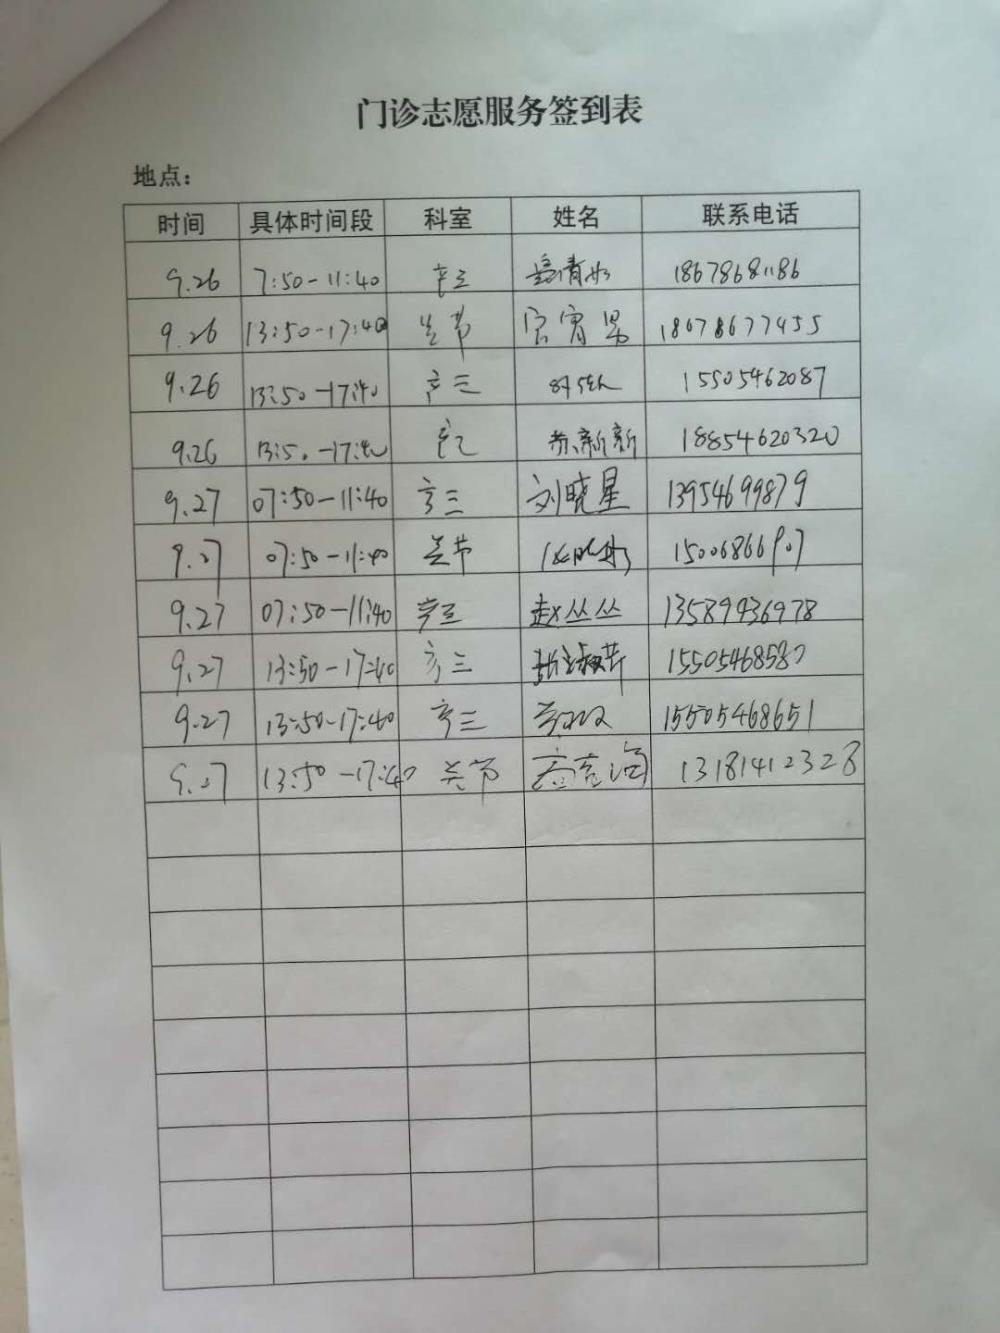 门诊志愿服务签到表
地点：
时间 具体时间段 科室 姓名 联系电话
9.26 7:50-11:40 18678681186
9.26 13:50-17:40 18678677455
9.26 13:50-17:40 产三 15505462087
9.26 13:50-17:40 苏新新 18854620320
9.27 07:50-11:40 产三 刘晓星 13954699879
9.27 07:50-11:40 关节 15006866907
9.27 07:50-11:40 赵丛丛 13589936978
9.27 13:50-17:40 产三 15505468580
9.27 13:50-17:40 产三 15505468651
9.27 13:50-17:40 关节 13181412328